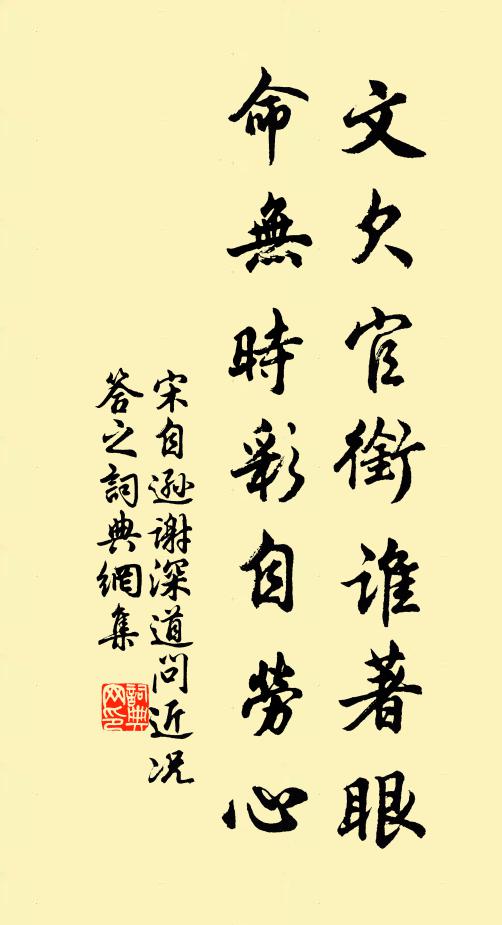 文欠官銜誰著眼
命無時彩自勞心
宋自遜謝深道問近況
答之詞典網集
詞典网印